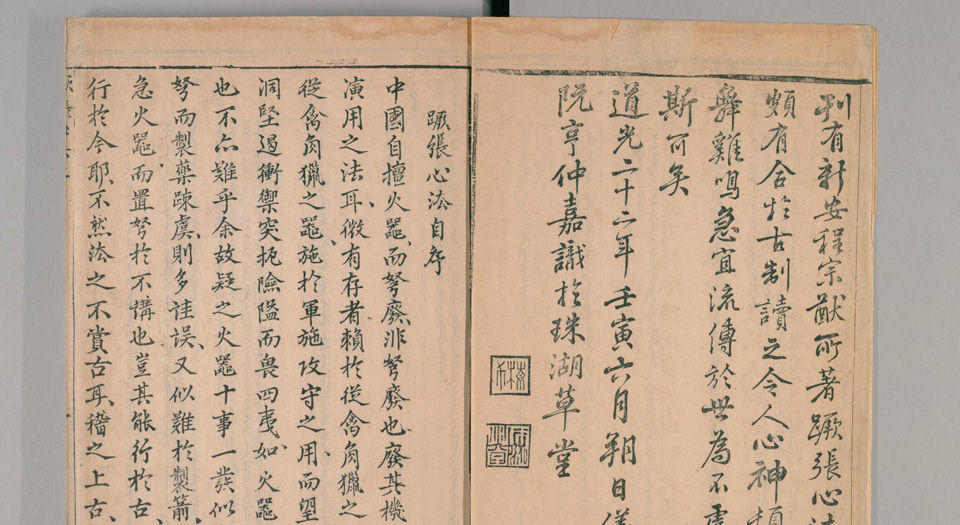 刊有新安程宗猷所著蹶張心法
頗有合於古制讀之令人心神頓
舞雞鳴急宜流傳於世為不虛
斯可矣
道光二十二年壬寅六月朔日儀
阮亨仲嘉識於珠湖草堂
蹶張心法自序
中國自擅火器而弩廢非弩廢也廢其機
演用之法耳微有存者賴於從禽肉獵之
從禽肉獵之器施於軍旅攻守之用而望
洞堅遏衝禦突扼險隘而畏四夷如火器
也不亦難乎余故疑之火器十事一發似
弩而製藥疎虞則多詿誤又似難於製箭
急火器而置弩於不講也豈其能行於古
行於今耶不然法之不嘗古耳稽之上古